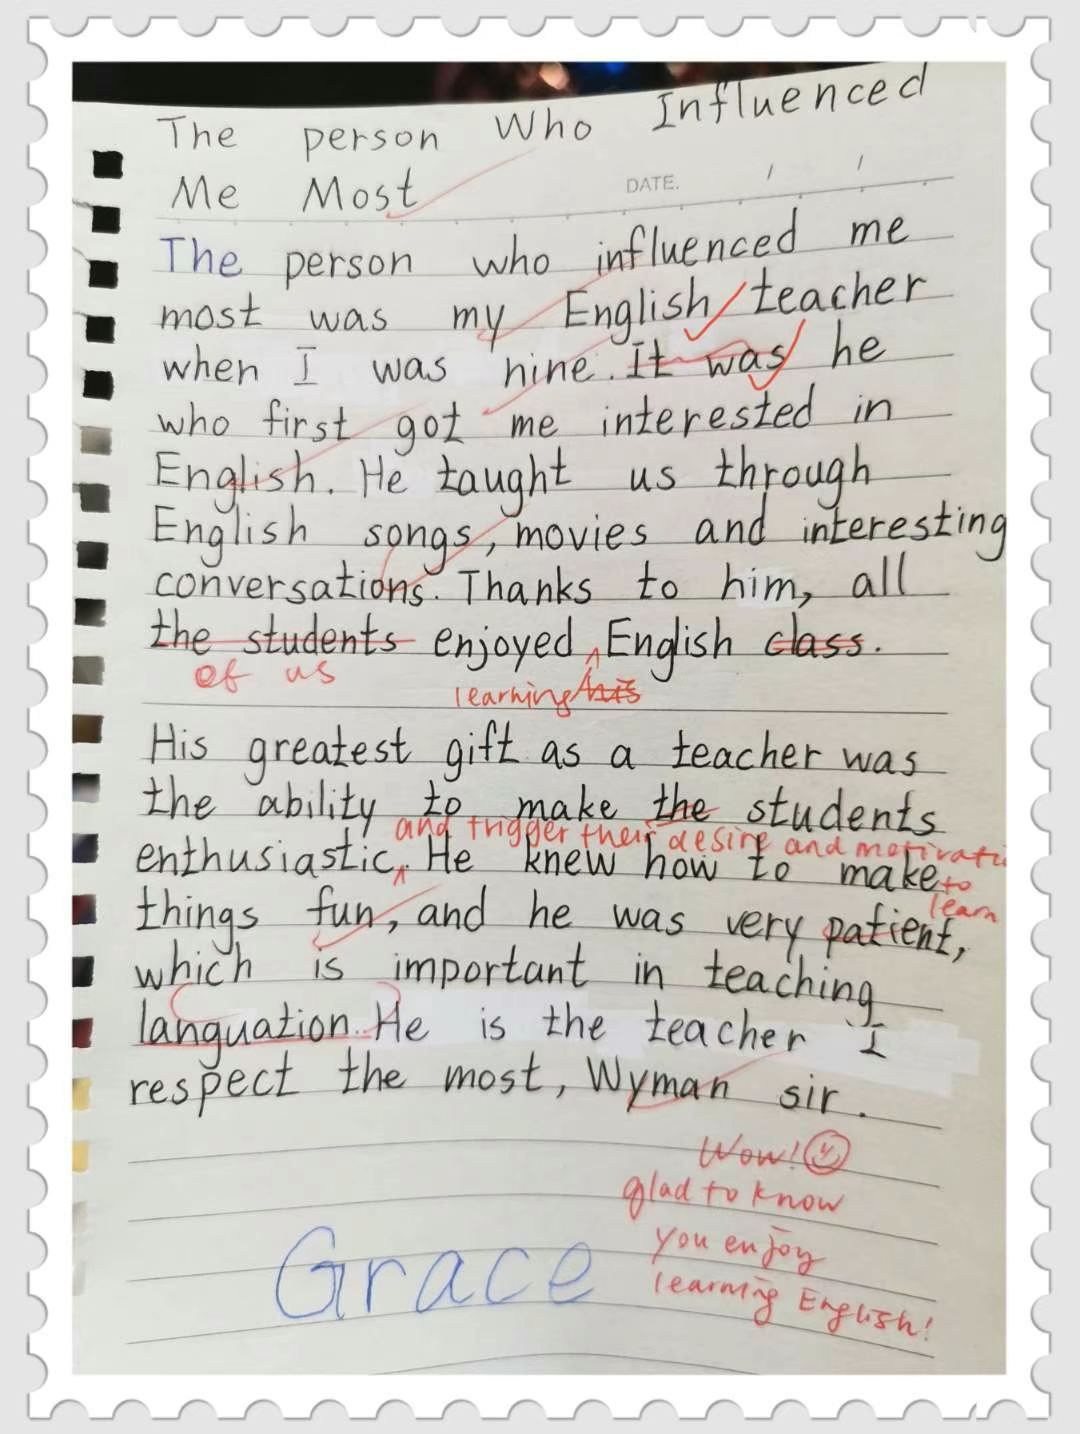 The person Who Influenced
Me Most
DATE. / /
The person who influenced me
most was my English teacher
when I was nine. It was he
who first got me interested in
English. He taught us through
English songs, movies and interesting
conversations. Thanks to him, all
the students enjoyed English class.
of us
learning his
His greatest gift as a teacher was
the ability to make the students
and trigger their desire and motivati
enthusiastic. He knew how to make
to
learn
things fun, and he was very patient,
which is important in teaching
languation. He is the teacher I
respect the most, Wyman sir.
Wow!
glad to know
you enjoy
learning English!
Grace